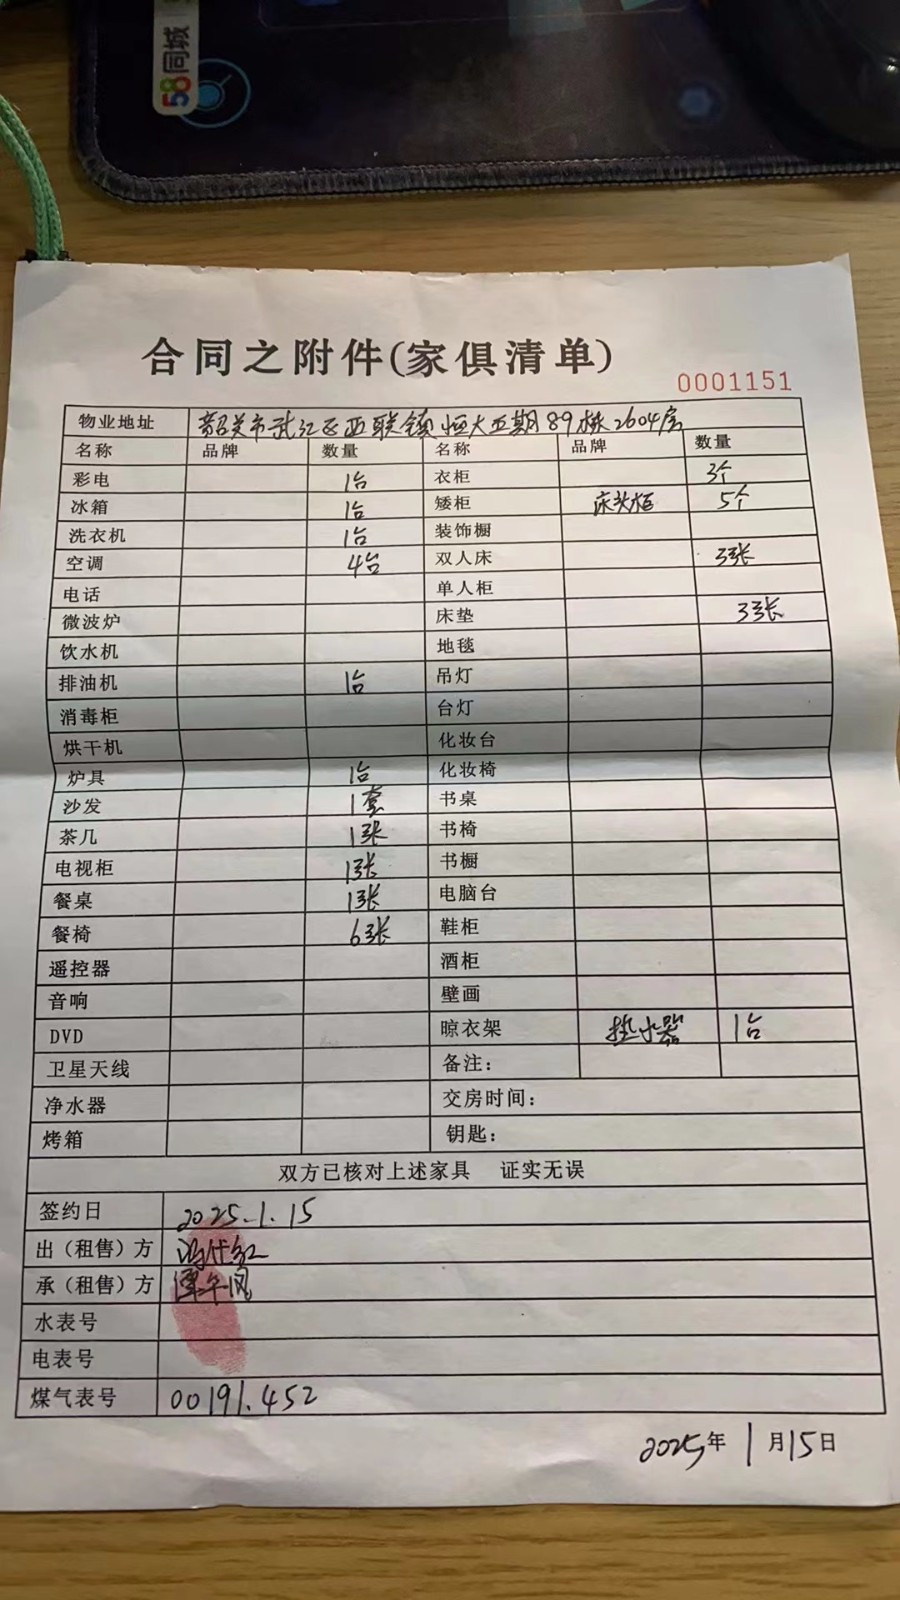 58同城
合同之附件(家俱清单)
0001151
物业地址 韶关市武江区西联镇恒大五期89栋2604房
名称 品牌 数量 名称 品牌 数量
彩电 1台 衣柜 3个
冰箱 1台 矮柜 床头柜 5个
洗衣机 1台 装饰橱
空调 4台 双人床 3张
电话 单人柜
微波炉 床垫 3张
饮水机 地毯
排油机 1台 吊灯
消毒柜 台灯
烘干机 化妆台
炉具 1台 化妆椅
沙发 1套 书桌
茶几 1张 书椅
电视柜 1张 书橱
餐桌 1张 电脑台
餐椅 6张 鞋柜
遥控器 酒柜
音响 壁画
DVD 晾衣架 热水器 1台
卫星天线 备注：
净水器 交房时间：
烤箱 钥匙：
双方已核对上述家具 证实无误
签约日 2025.1.15
出（租售）方
承（租售）方
水表号
电表号
煤气表号 00191.452
2025年1月15日